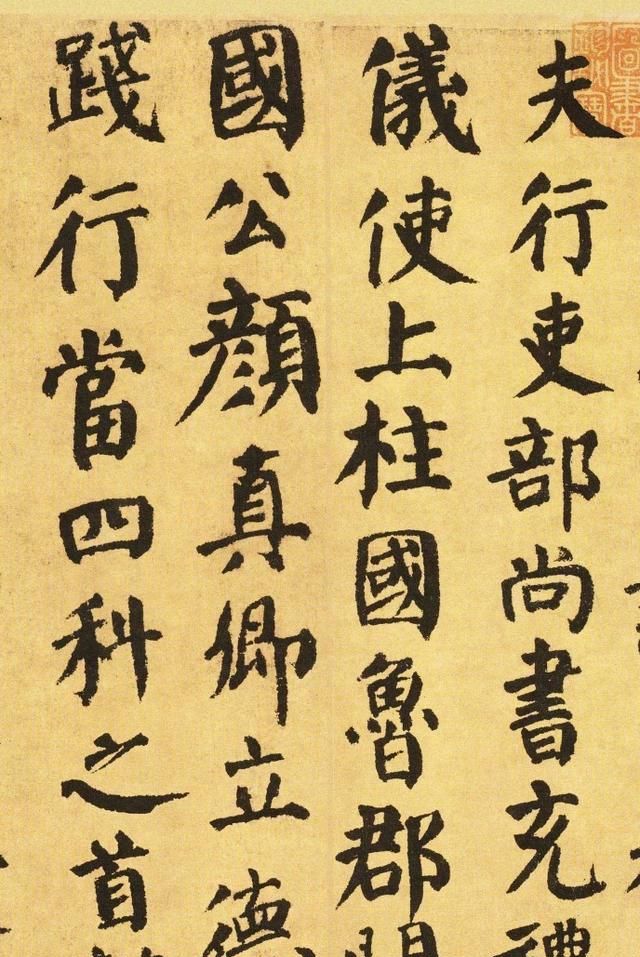 夫行吏部尚書充禮
儀使上柱國魯郡開
國公顏真卿立德
踐行當四科之首